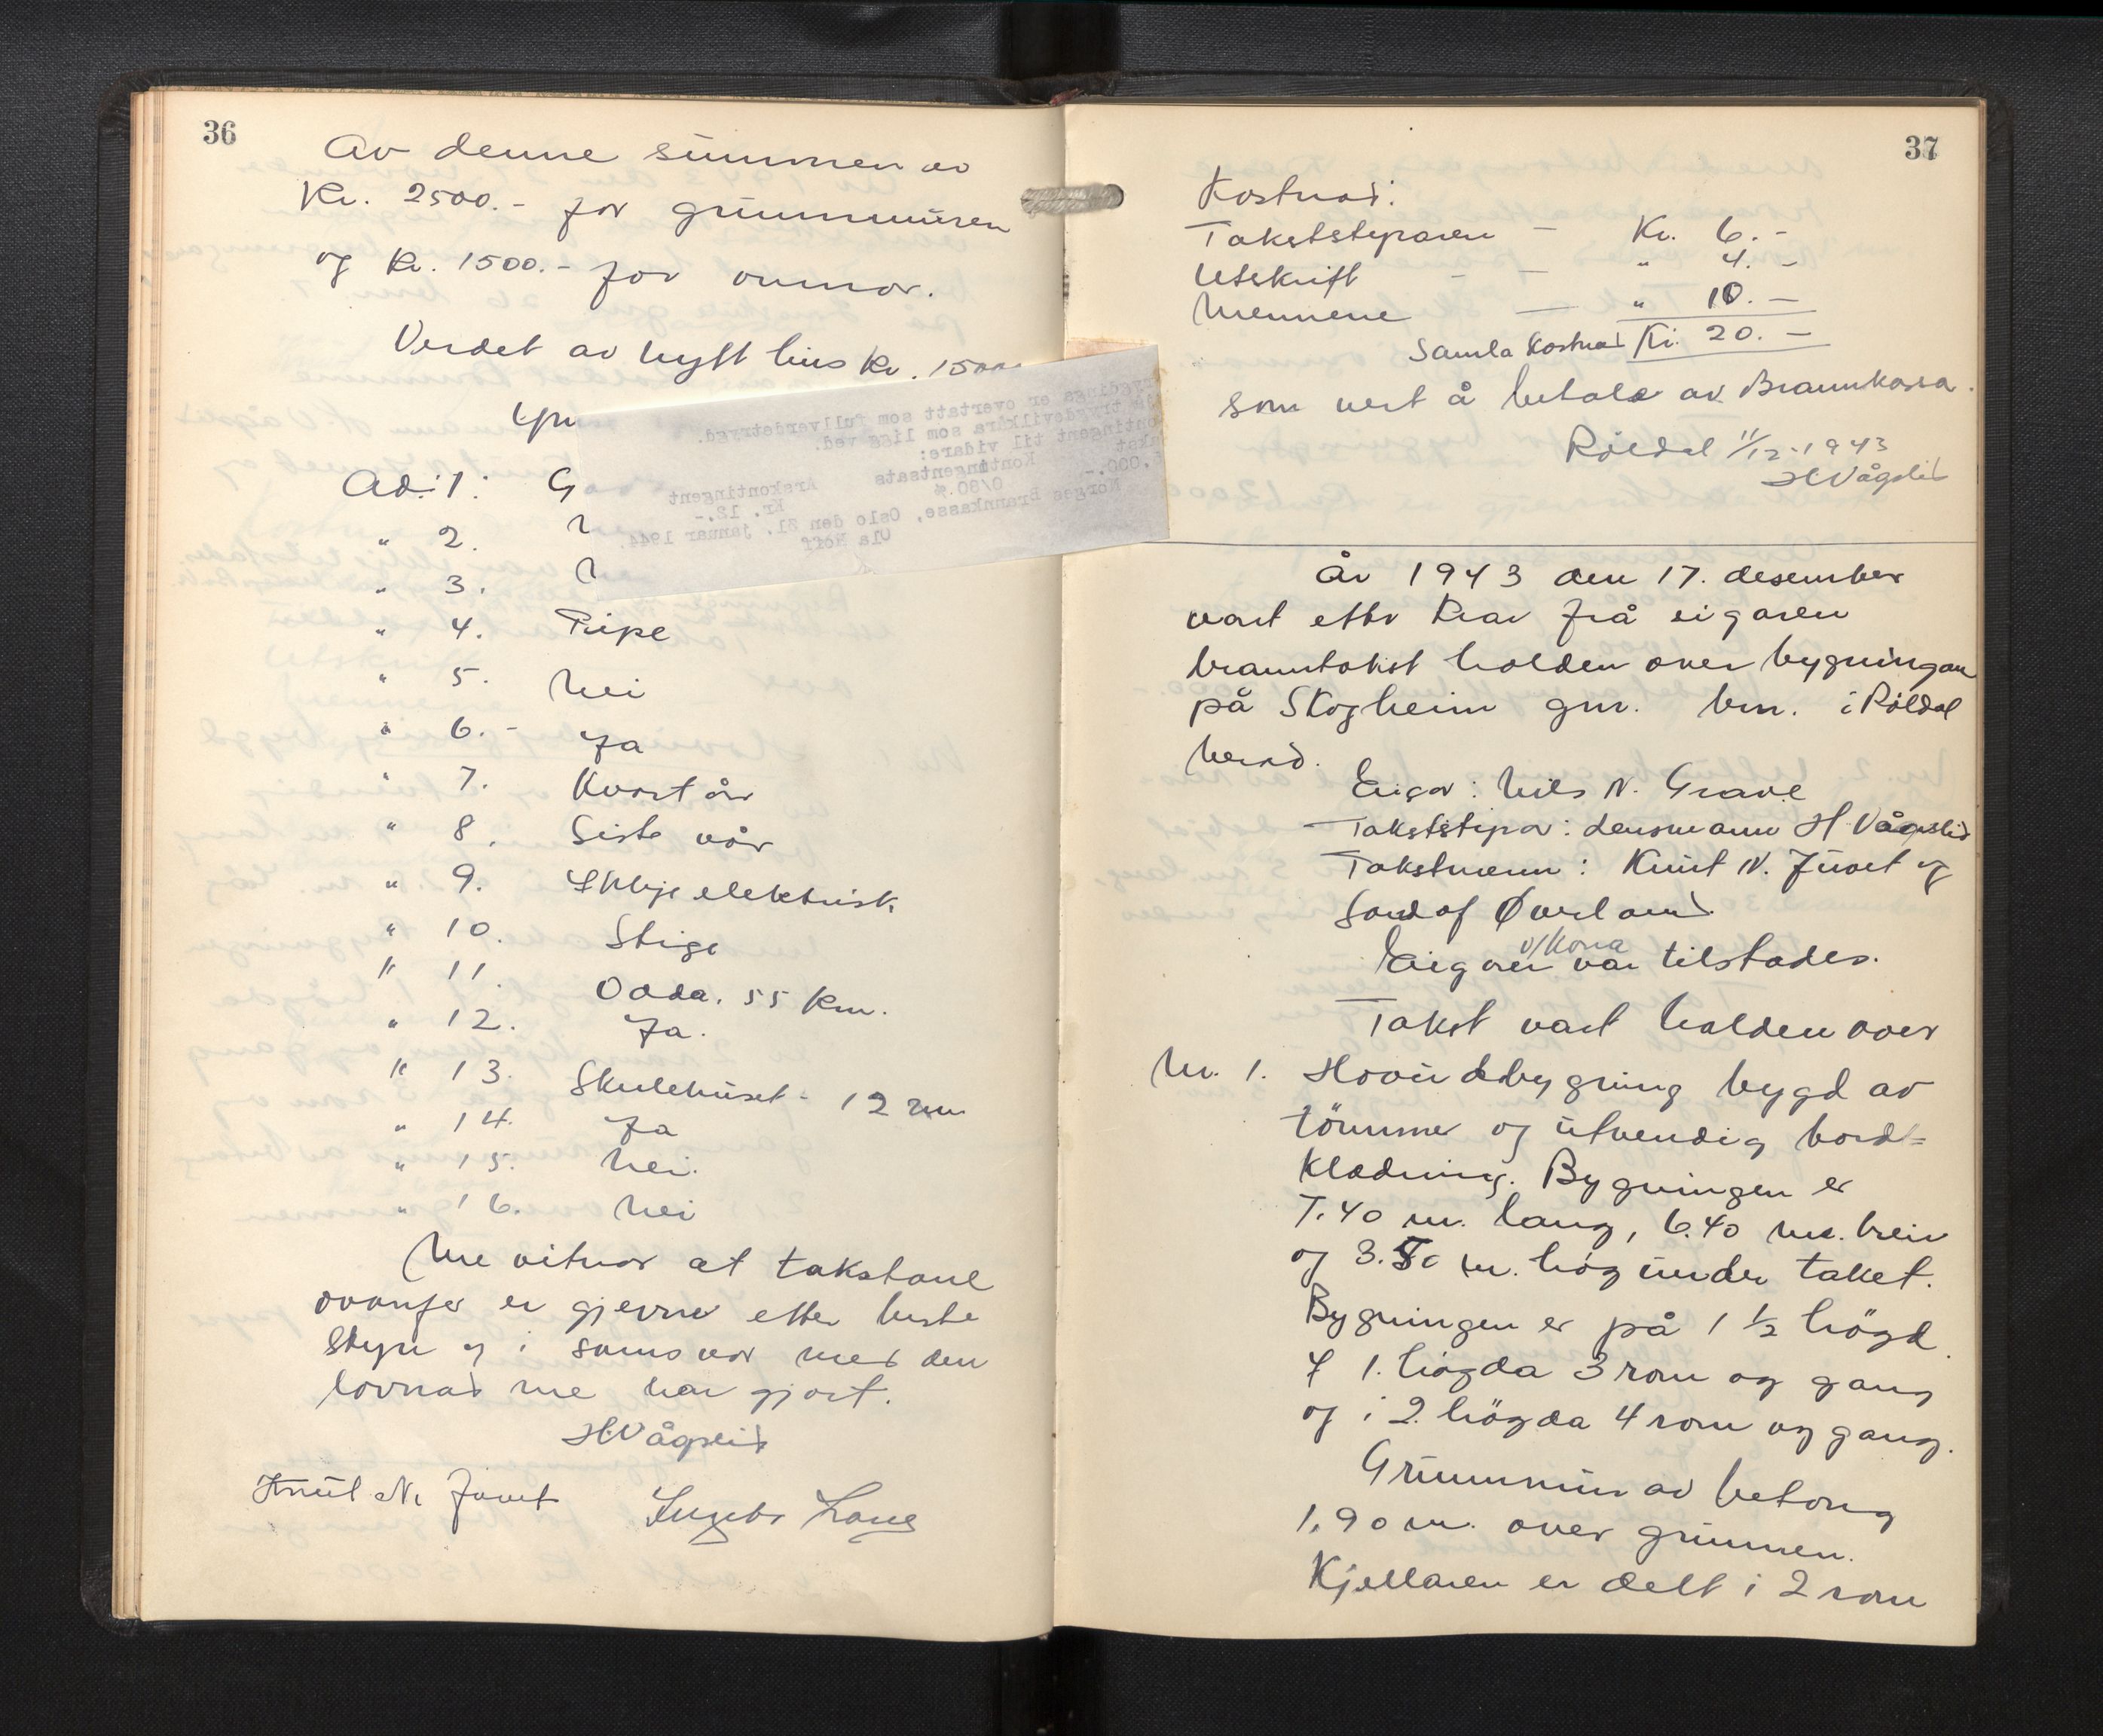 36
Av denne summen av
Kr. 2500.- for grunnmuren
og kr. 1500.- for omnar.
Verdet av nytt hus kr. 1500
Ad: 1: G
" 2. N
" 3. N
" 4. Pipe
" 5. Nei
" 6. - Ja
" 7. Kvart år
" 8. Siste vår
" 9. Ikkje elektrisk
" 10. Stige
" 11. Odda. 55 km.
" 12. Ja.
" 13. Skulehuset - 12 m
" 14. Ja
" 15. Nei.
" 16. Nei
Me vitnar at takstane
ovanfor er gjevne etter beste
skyn og i samsvar med den
lovnad me har gjort.
H Vågslid
Knut N. Juvet
er overtatt som fullverdetrygd.
trygdevilkåra som ligg ved.
ontingent til vidare:
Kontingentsats Årskontingent
.000.- 0/80.% Kr. 12.-
Norges Brannkasse, Oslo den 21. januar 1944.
Ola Hoff
37
Kostnad:
Takststyraren - Kr. 6.-
Utskrift - - " 4.-
Mennene - " 10.-
Samla kostnad Kr. 20.-
som vert å betale av Brannkassa.
Röldal 11/12-1943
H Vågslid
År 1943 den 17. desember
vart etter krav frå eigaren
branntakst halden over bygningane
på Skogheim gnr. bnr. i Röldal
herad.
Eigar: Nils N. Grave
Takststyrar: lensmann H Vågslid
Takstmenn: Knut N. Juvet og
Gardof Øverland
Eigaren v/kona var tilstades.
Takst vart halden over
Nr. 1. Hovudbygning bygd av
tömmer og utvendig bord=
kledning. Bygningen er
7.40 m. lang, 6.40 m. brei
og 3.50 m. høg under taket.
Bygningen er på 1 1/2 högd.
I 1. högda 3 rom og gang
og i 2. högda 4 rom og gang.
Grunnmur av betong
1,90 m. over grunnen.
Kjellaren er delt i 2 rom